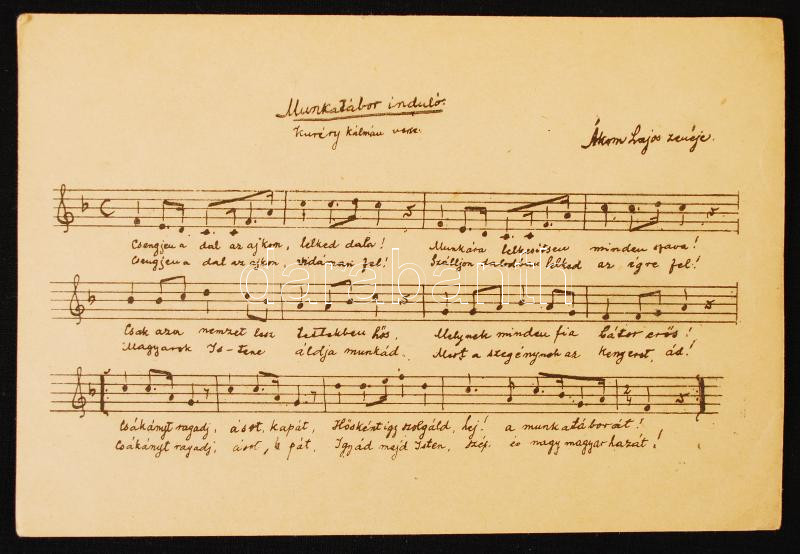 Munkatábor induló.
Kuréry Kálmán verse.
Ákom Lajos zenéje.
Csengjen a dal az ajkon, lelked dala! Munkára lelkesítsen minden szava!
Csengjen a dal az ajkon, vidáman fel! Szálljon dalodban lelked az égre fel!
darabanth
Csak az a nemzet lesz tettekben hős, Melynek minden fia bátor erős!
Magyarok Is-tene áldja munkád. Mert a szegénynek az kenyeret, ád!
Csákányt ragadj, ásót, kapát, Hősként így szolgáld, hej! a munkatáborát!
Csákányt ragadj, ásót, ka pát, Így ád majd Isten, szép és nagy magyar hazát!